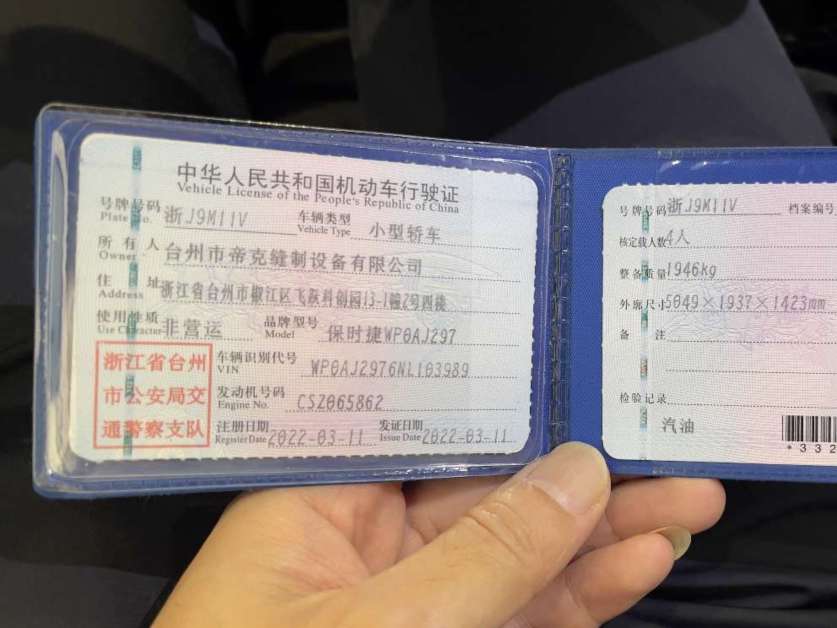 中华人民共和国机动车行驶证
Vehicle License of the People's Republic of China
号牌号码 浙J9M11V 车辆类型 小型轿车
Plate No. Vehicle Type
所有人 台州市帝克缝制设备有限公司
Owner
住址 浙江省台州市椒江区飞跃科创园13-1幢2号西楼
Address
使用性质 非营运 品牌型号 保时捷WP0AJ297
Use Character Model
浙江省台州
市公安局交
通警察支队
车辆识别代号 WP0AJ2976NL103989
VIN
发动机号码 CSZ065862
Engine No.
注册日期 2022-03-11 发证日期 2022-03-11
Register Date Issue Date
号牌号码 浙J9M11V 档案编号
核定载人数 4人
整备质量 1946kg
外廓尺寸 5049×1937×1423
备注
检验记录
汽油
*332